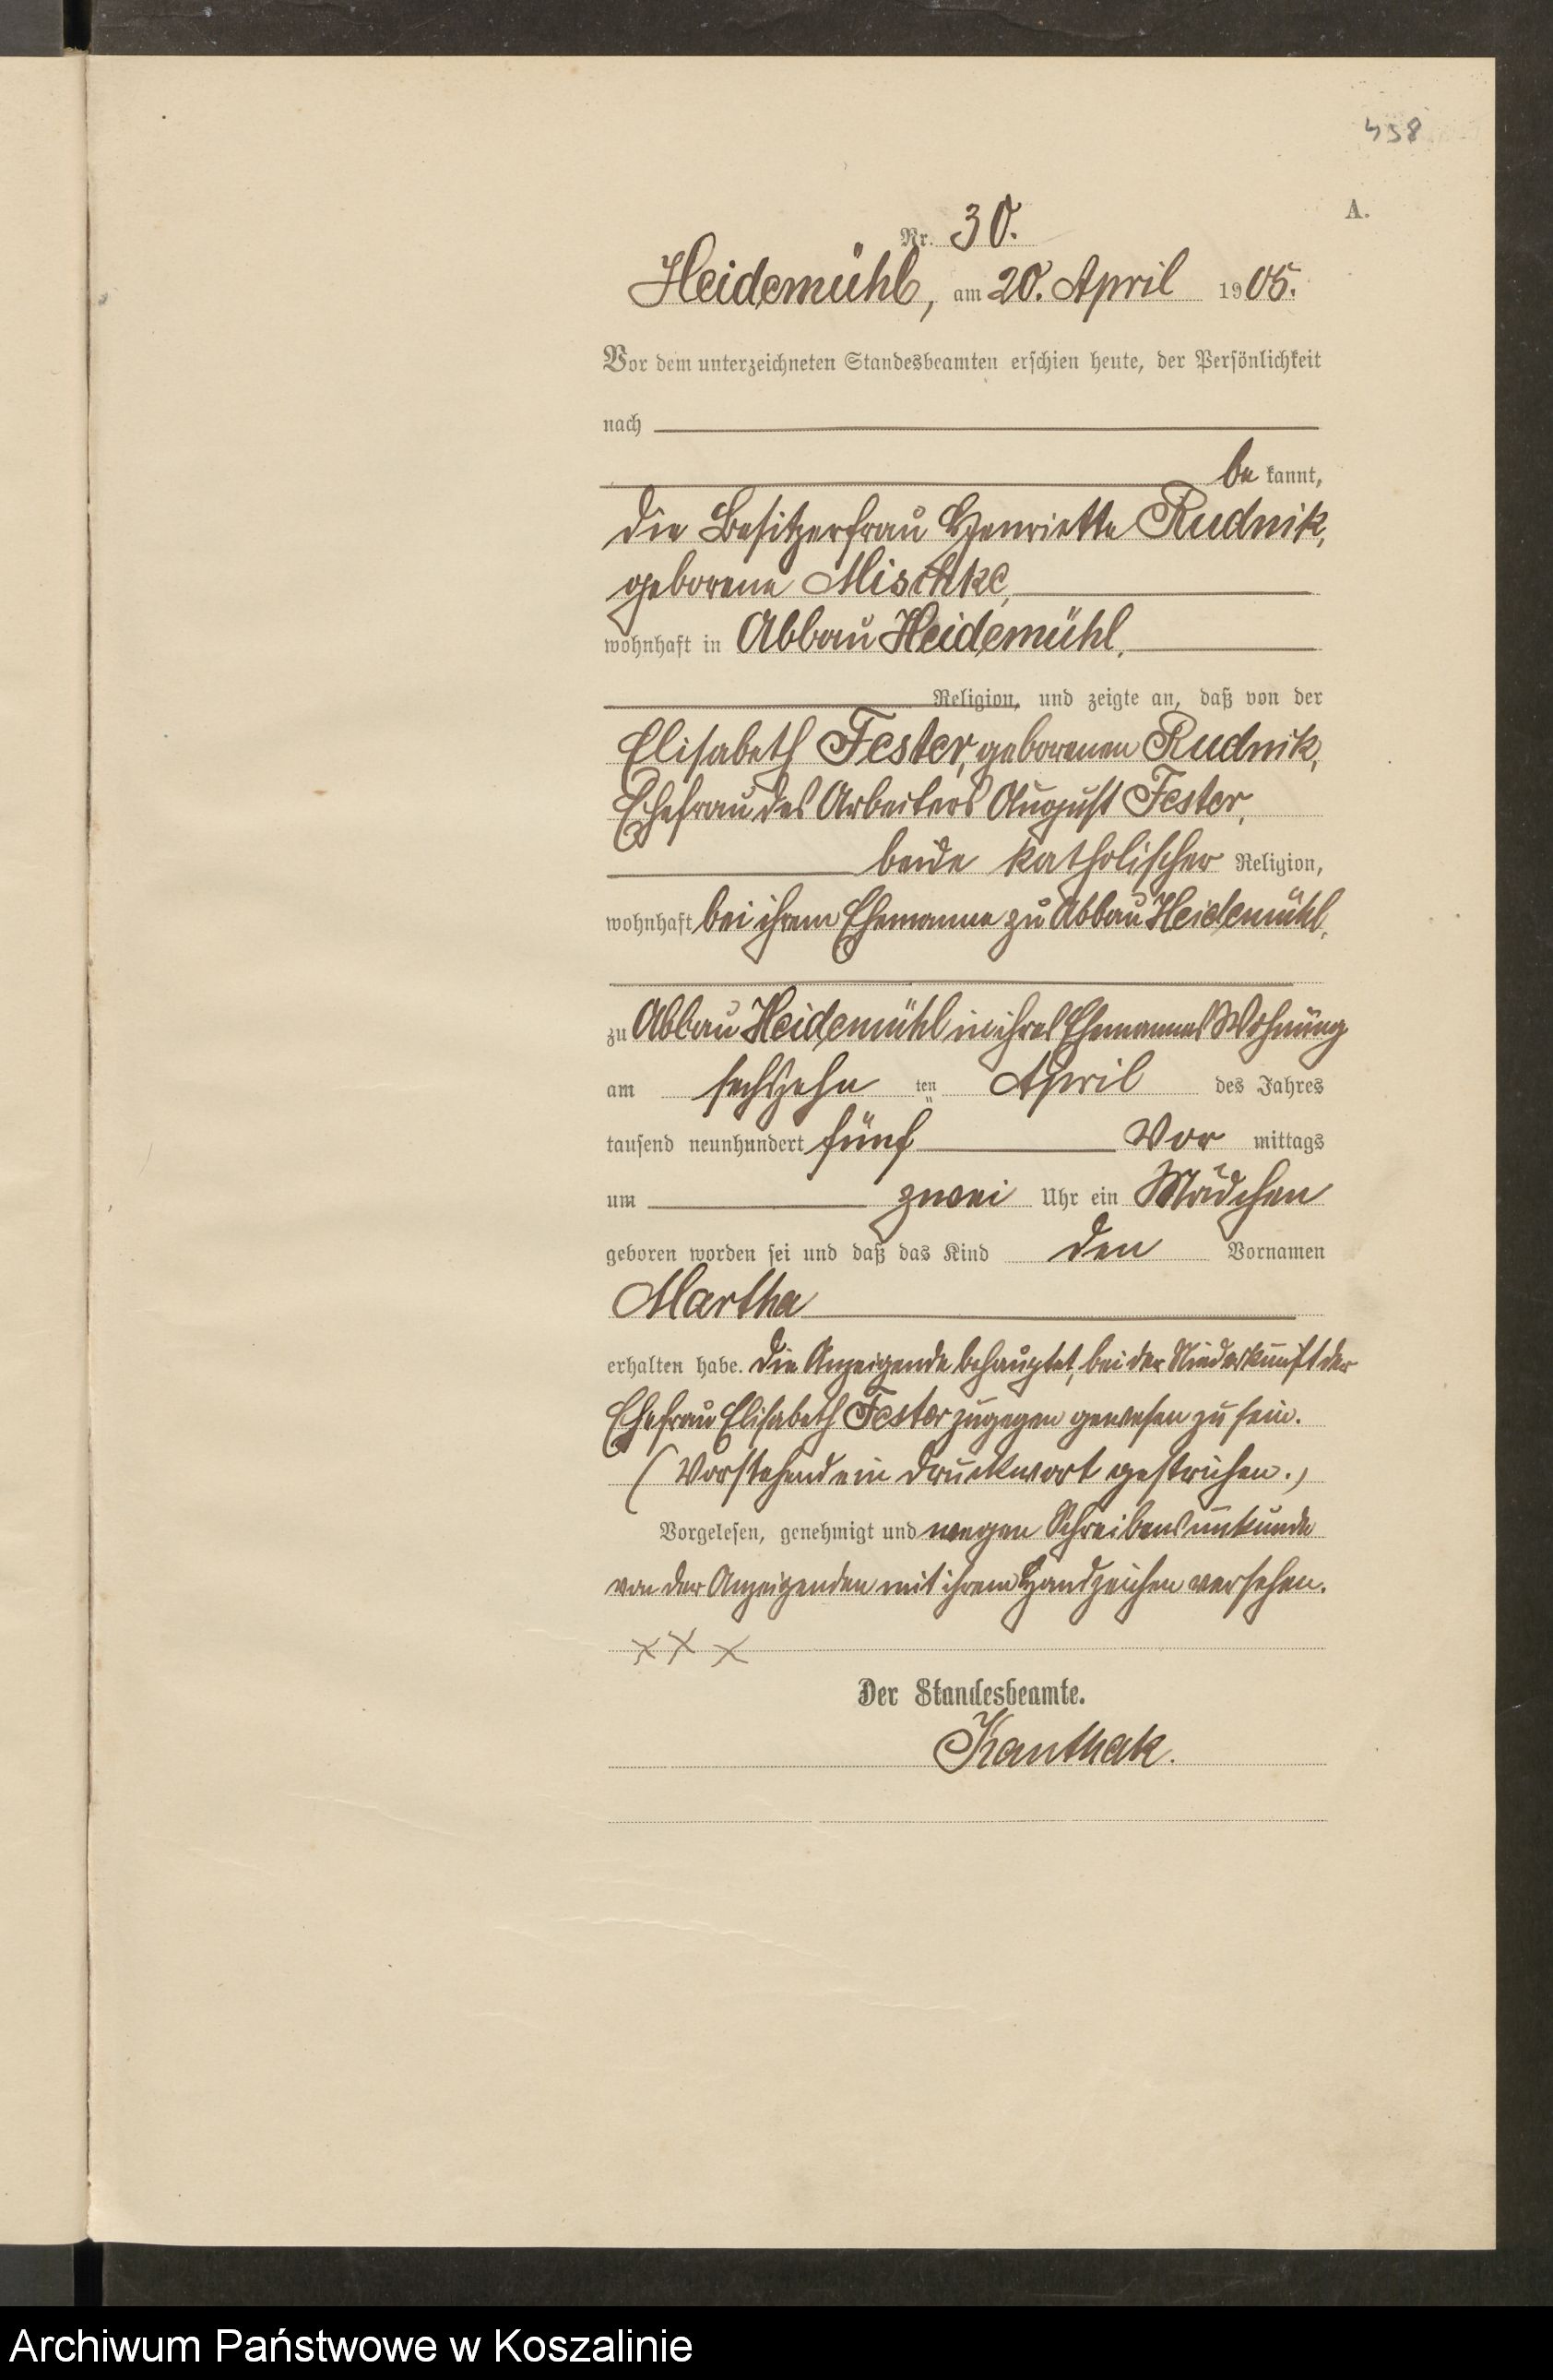 458
A.
Nr. 30.
Heidemühl, am 20. April 1905.
Vor dem unterzeichneten Standesbeamten erschien heute, der Persönlichkeit
nach
be kannt,
die Besitzerfrau Henriette Rudnik,
geborene Mischke,
wohnhaft in Abbau Heidemühl,
Religion, und zeigte an, daß von der
Elisabeth Fester, geborenen Rudnik,
Ehefrau des Arbeiters August Fester,
beide katholischer Religion,
wohnhaft bei ihrem Ehemanne zu Abbau Heidemühl,
zu Abbau Heidemühl in ihres Ehemannes Wohnung
am sechszehn ten April des Jahres
tausend neunhundert fünf Vor mittags
um zwei Uhr ein Mädchen
geboren worden sei und daß das Kind den Vornamen
Martha
erhalten habe. Die Anzeigende behauptet, bei der Niederkunft der
Ehefrau Elisabeth Fester zugegen gewesen zu sein.
(Vorstehend ein Druckwort gestrichen.)
Vorgelesen, genehmigt und wegen Schreibensunkunde
von der Anzeigenden mit ihrem Handzeichen versehen.
x x x
Der Standesbeamte.
Kanthak.
Archiwum Państwowe w Koszalinie